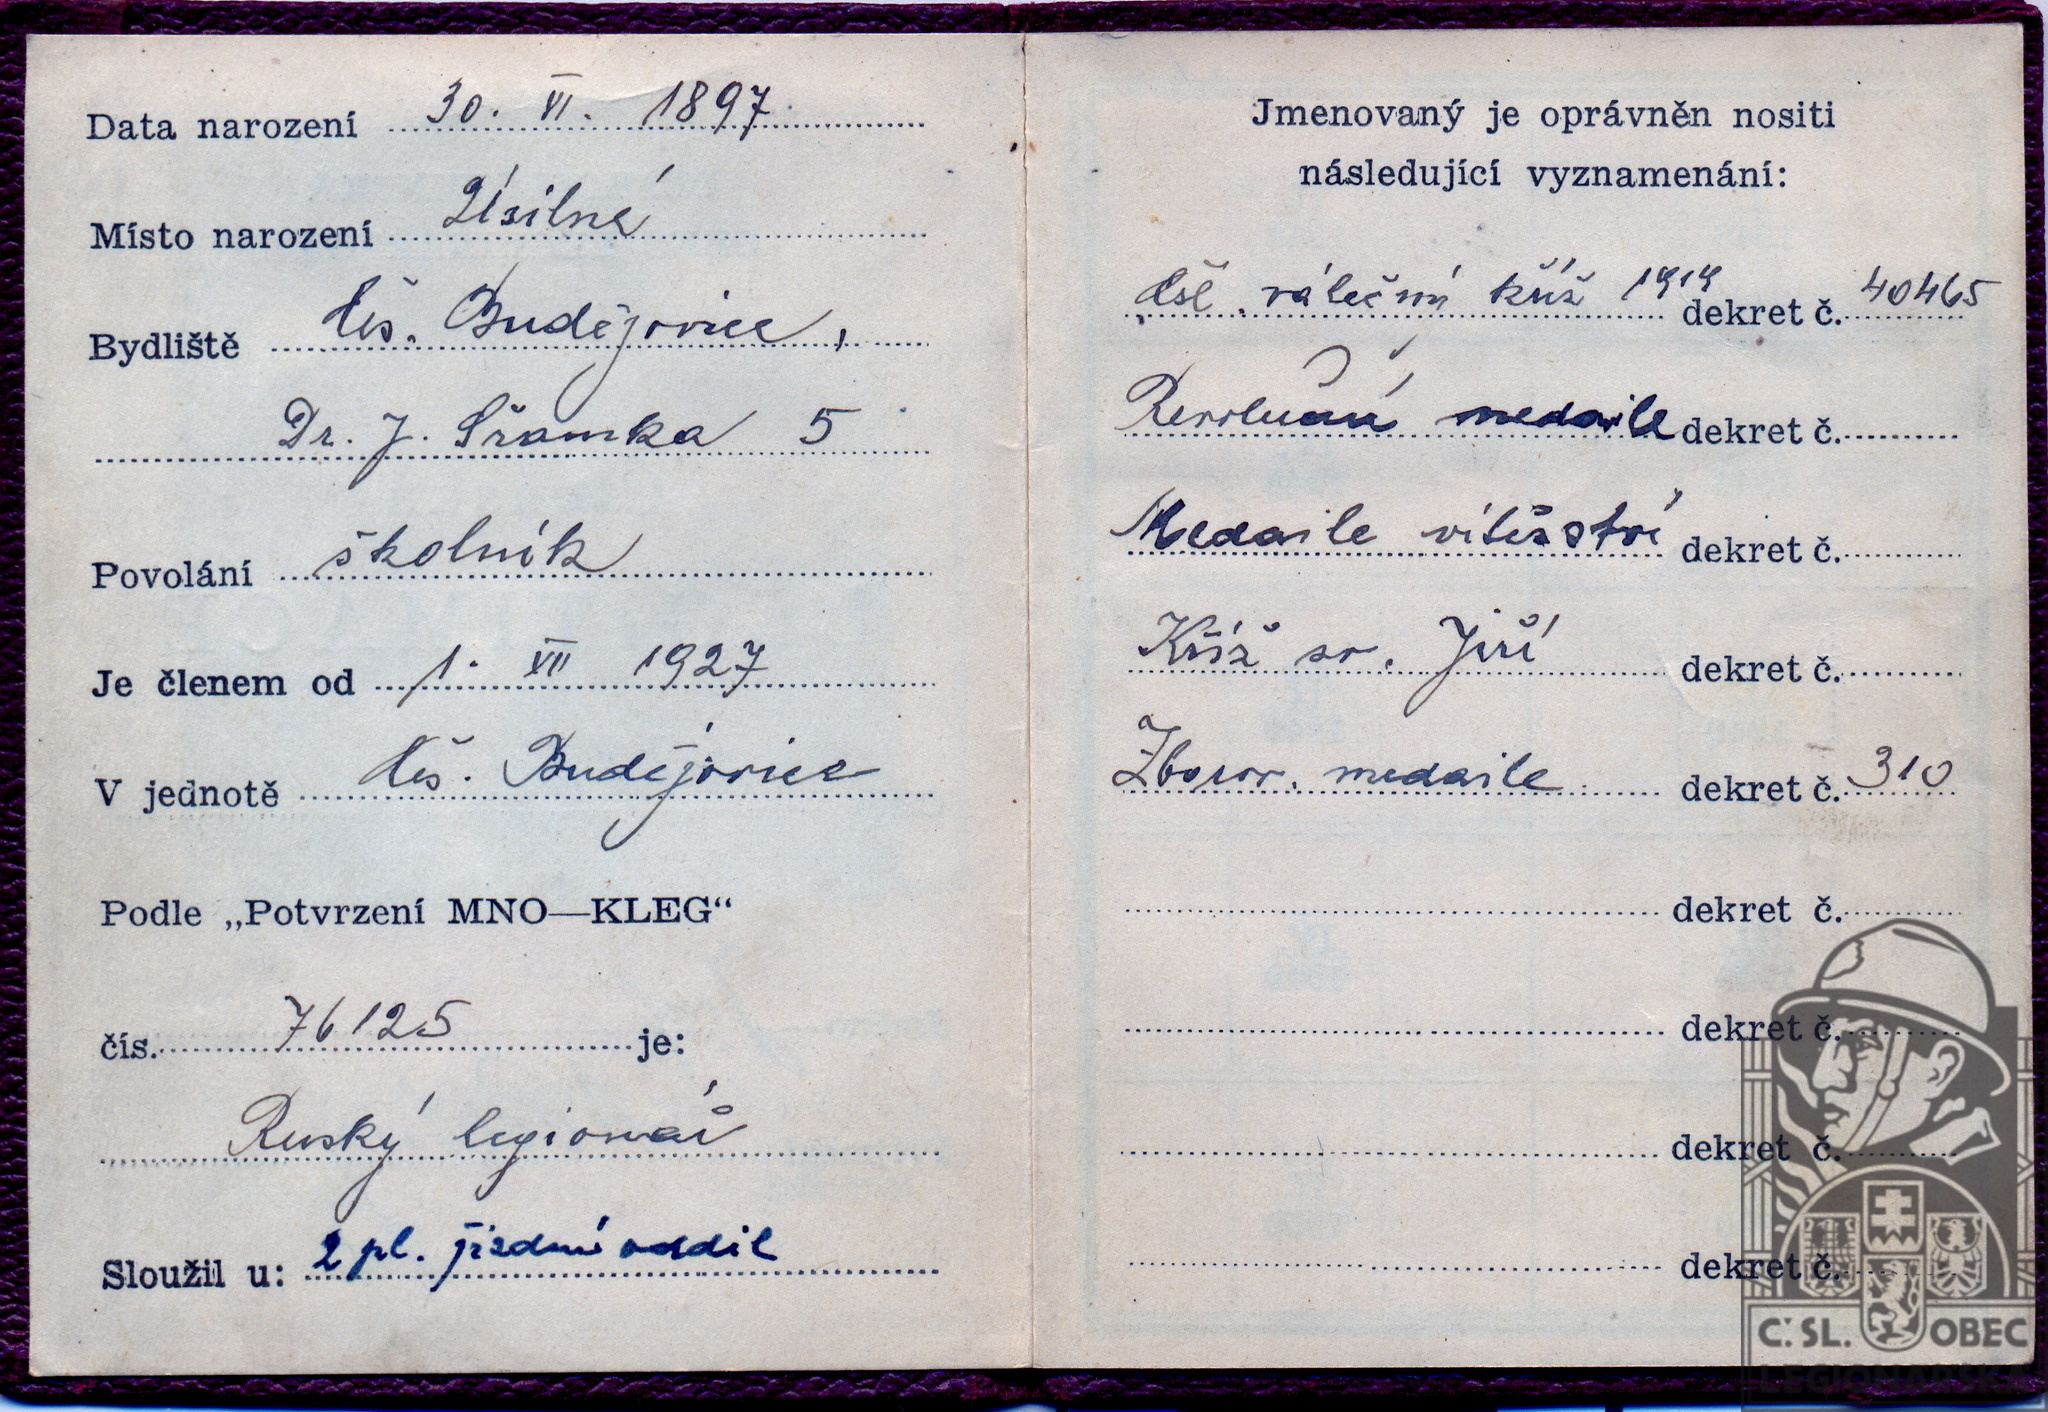 Data narození 30. VI. 1897
Místo narození Úsilné
Bydliště Čes. Budějovice,
Dr. J. Šramka 5
Povolání školník
Je členem od 1. VII 1927
V jednotě Čes. Budějovice
Podle „Potvrzení MNO—KLEG“
čís. 76125 je:
Ruský legionář
Sloužil u: 2 pl. jízdní oddíl
Jmenovaný je oprávněn nositi
následující vyznamenání:
čsl. válečný kříž 1919 dekret č. 40465
Revoluční medaile dekret č.
Medaile vítězství dekret č.
Kříž sv. Jiří dekret č.
Zborov. medaile dekret č. 310
dekret č.
dekret č.
dekret č.
dekret č.
Č. SL. OBEC
LEGIONÁŘSKÁ